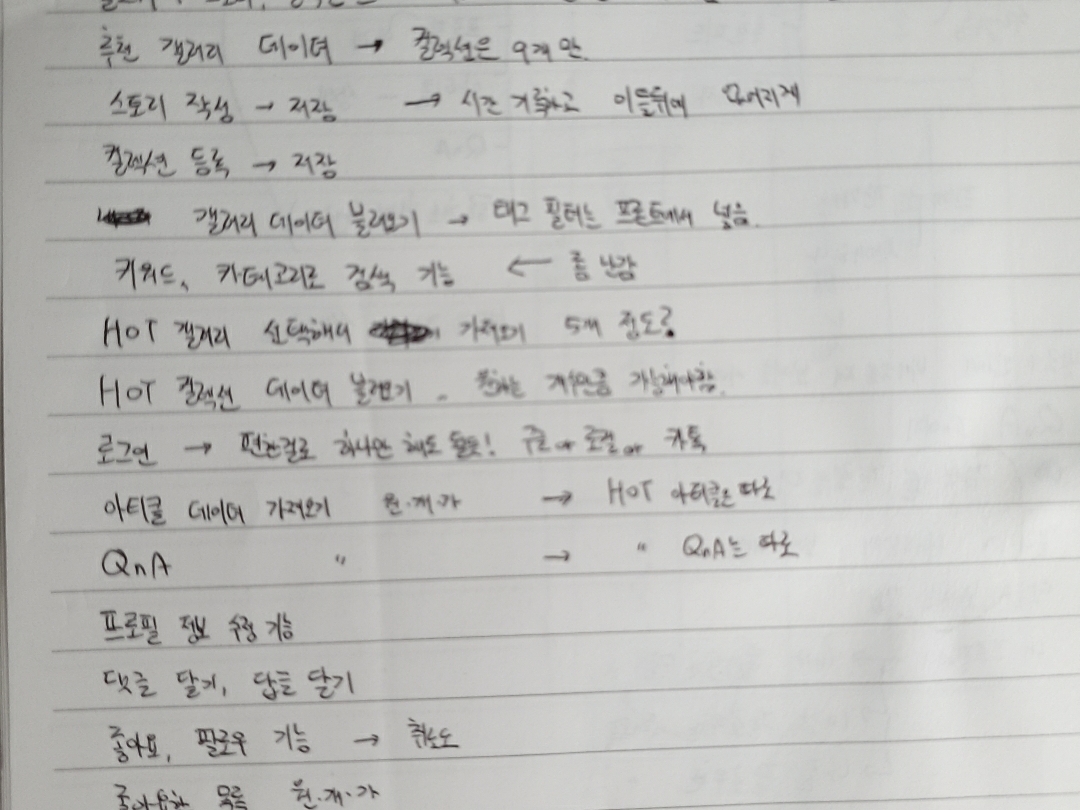 추천 갤러리 데이터 → 컬렉션은 9개만.
스토리 작성 → 저장 → 시간 기록하고 이틀뒤에 없어지게
컬렉션 등록 → 저장
갤러리 데이터 불러오기 → 태그 필터는 프론트에서 넣음.
키워드, 카테고리로 검색 기능 ← 좀 난감
HOT 갤러리 선택해서 가져오기 5개 정도?
HOT 컬렉션 데이터 불러오기 . 원하는 개수만큼 가능해야함.
로그인 → 편한걸로 하나만 해도 될듯! 구글 or 로컬 or 카톡
아티클 데이터 가져오기 원.개.가 → HOT 아티클은 따로
QnA 〃 → 〃 QnA는 따로
프로필 정보 수정 기능
댓글 달기, 답글 달기
좋아요, 팔로우 기능 → 취소도
목록 원.개.가